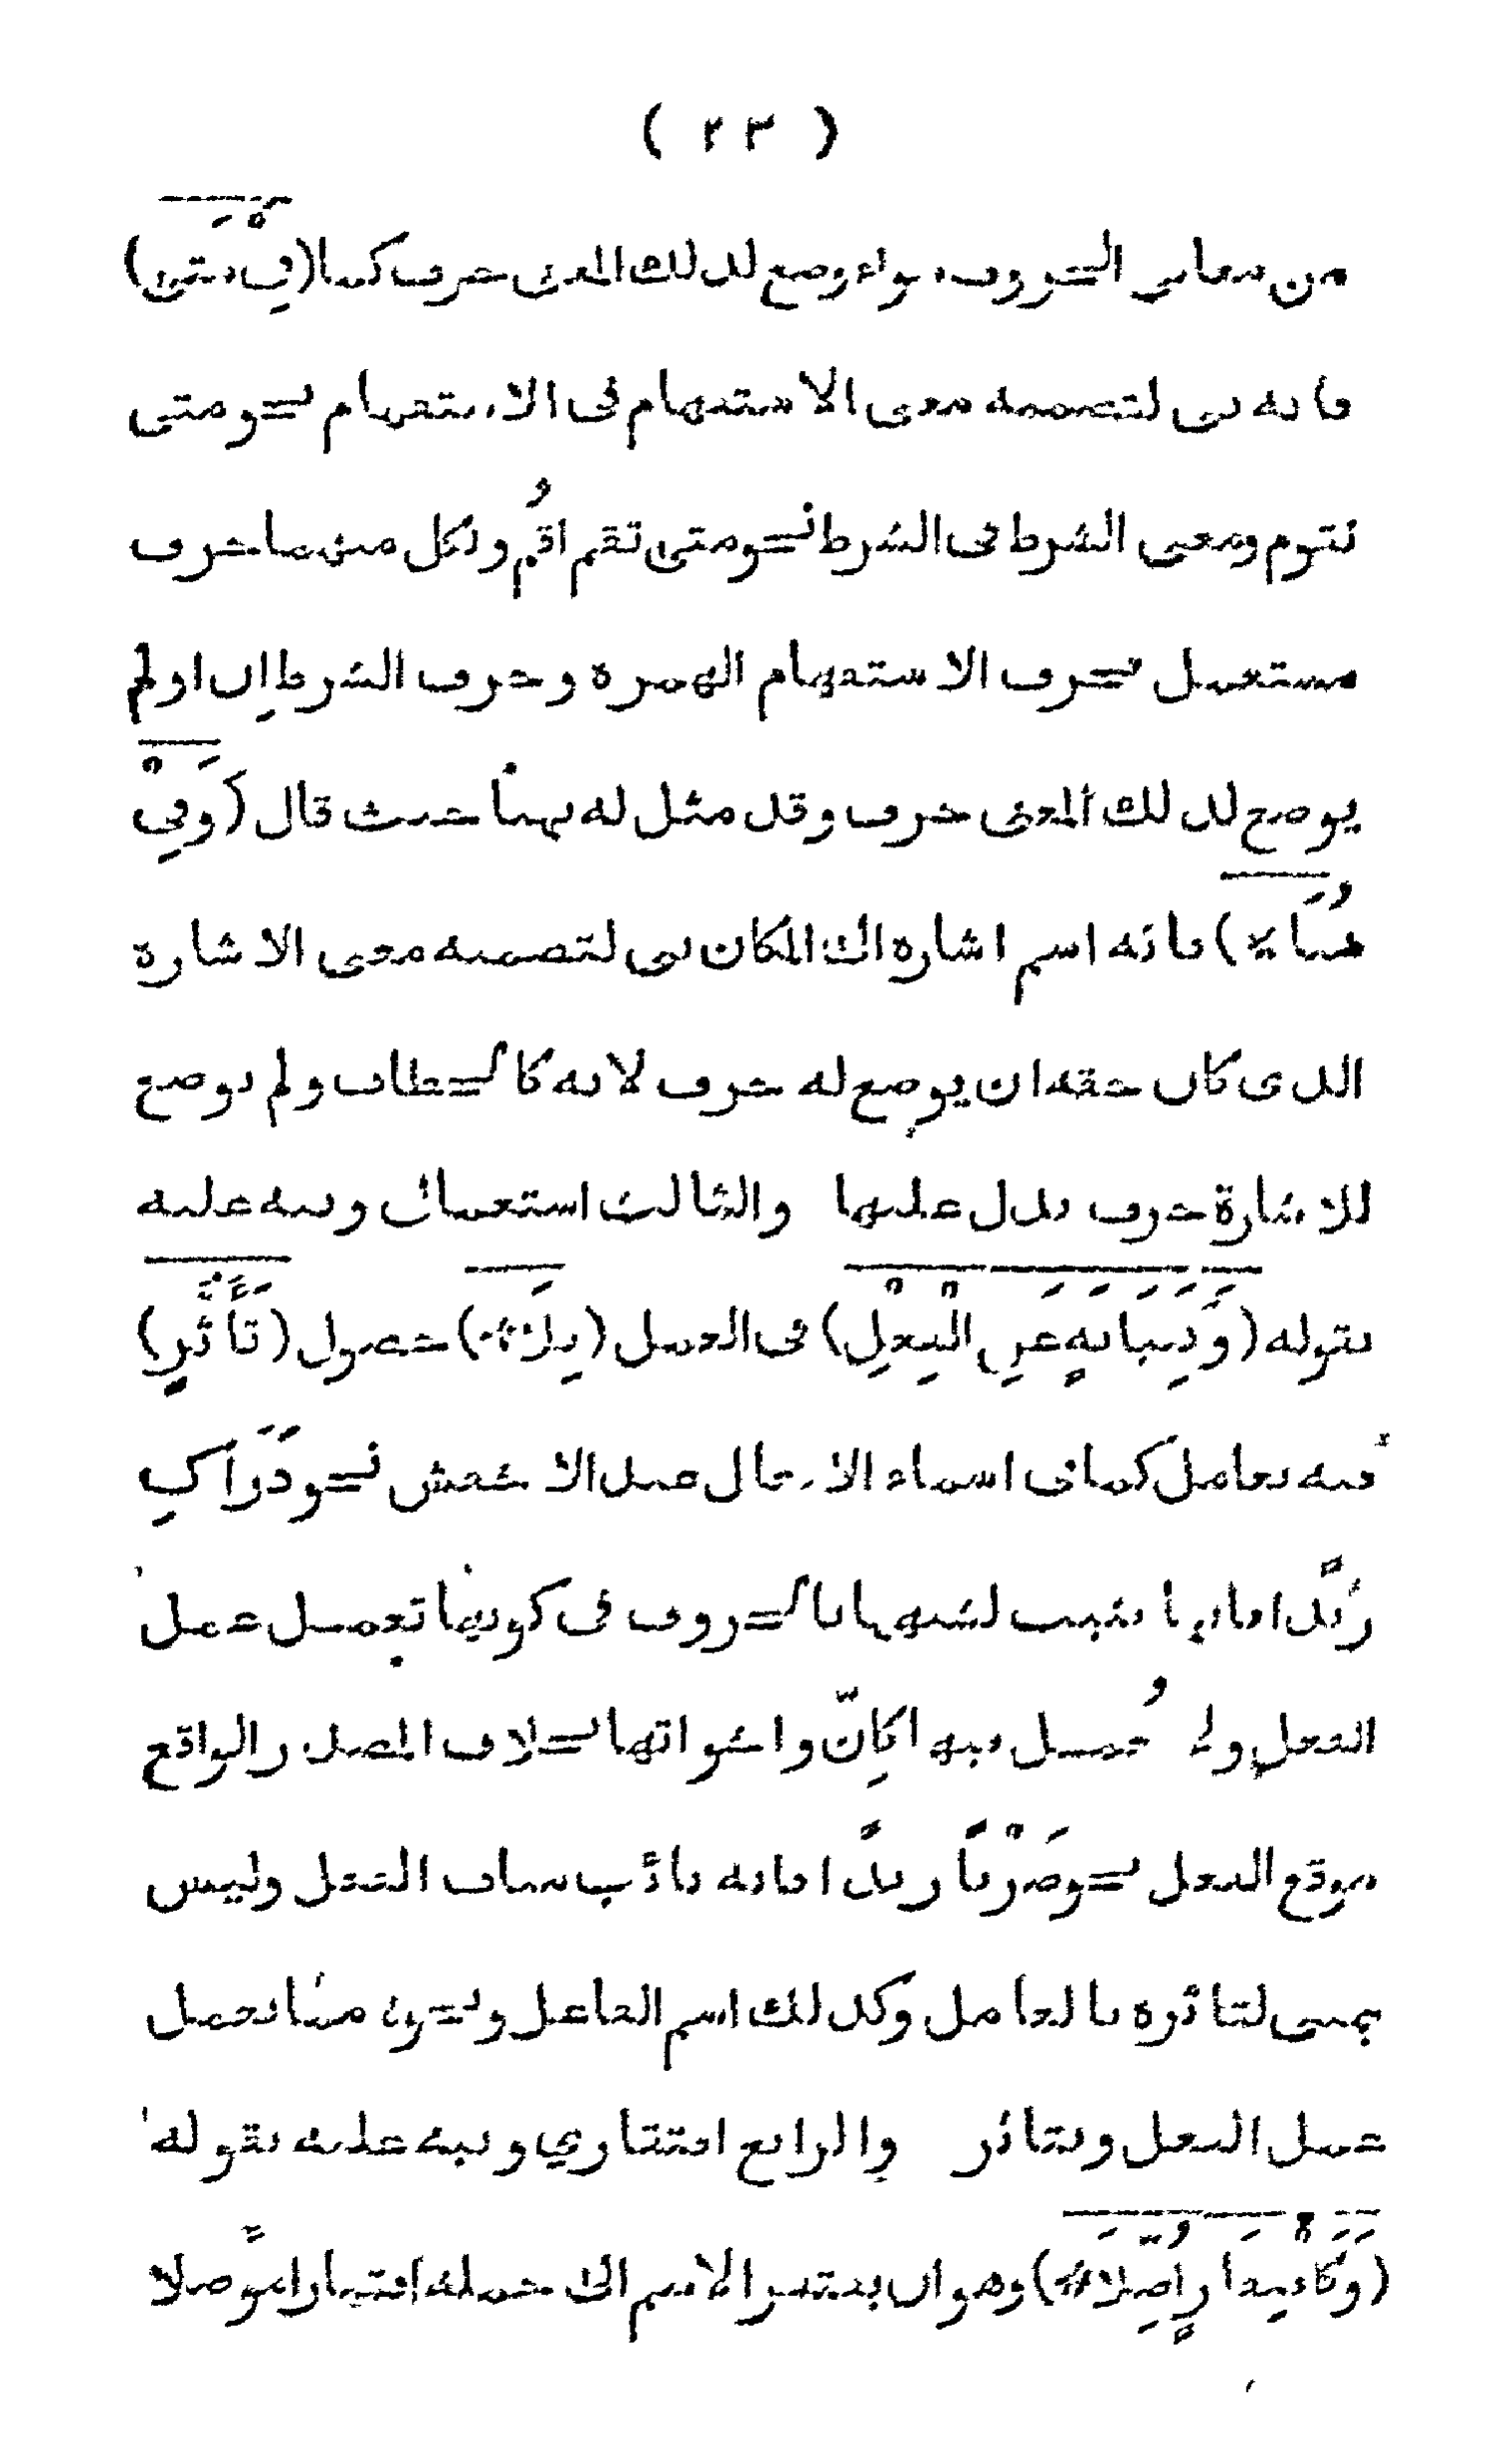 ( ٢٣ )
من معاني الحروف سواء وضع لذلك المعنى حرف كما (فِي مَتَى)
فانه بني لتضمنه معنى الاستفهام في الاستفهام نحو متى
تقوم ومعنى الشرط في الشرط نحو متى تقم اقُم ولكل منهما حرف
مستعمل فحرف الاستفهام الهمزة وحرف الشرط إن او لم
يوضع لذلك المعنى حرف وقد مثل له بهنا حيث قال (وَفِيْ
هُنَا) فانه اسم اشارة الى المكان بني لتضمنه معنى الاشارة
الذي كان حقه ان يوضع له حرف لانه كالخطاب ولم يوضع
للاشارة حرف يدل عليها والثالث استعمالي ونبه عليه
بقوله (وَنِيَابَةٍ عَنِ الْفِعْلِ) في العمل (بِلَا) حصول (تَأَثُّرٍ)
فيه بعامل كما في اسماء الافعال عند الاخفش نحو دَرَاكِ
زيدًا فانها بنيت لشبهها بالحروف في كونها تعمل عمل
الفعل ولا يُعمل فيها كإنّ واخواتها بخلاف المصدر الواقع
موقع الفعل نحو ضَرْبًا زيدًا فانه نائب مناب الفعل وليس
بمبني لتاثره بالعامل وكذلك اسم الفاعل ونحوه مما يعمل
عمل الفعل ويتاثر والرابع افتقاري ونبه عليه بقوله
(وَكَافْتِقَارٍ اُصِّلَا) وهو ان يفتقر الاسم الى جملة افتقارا مؤصلا